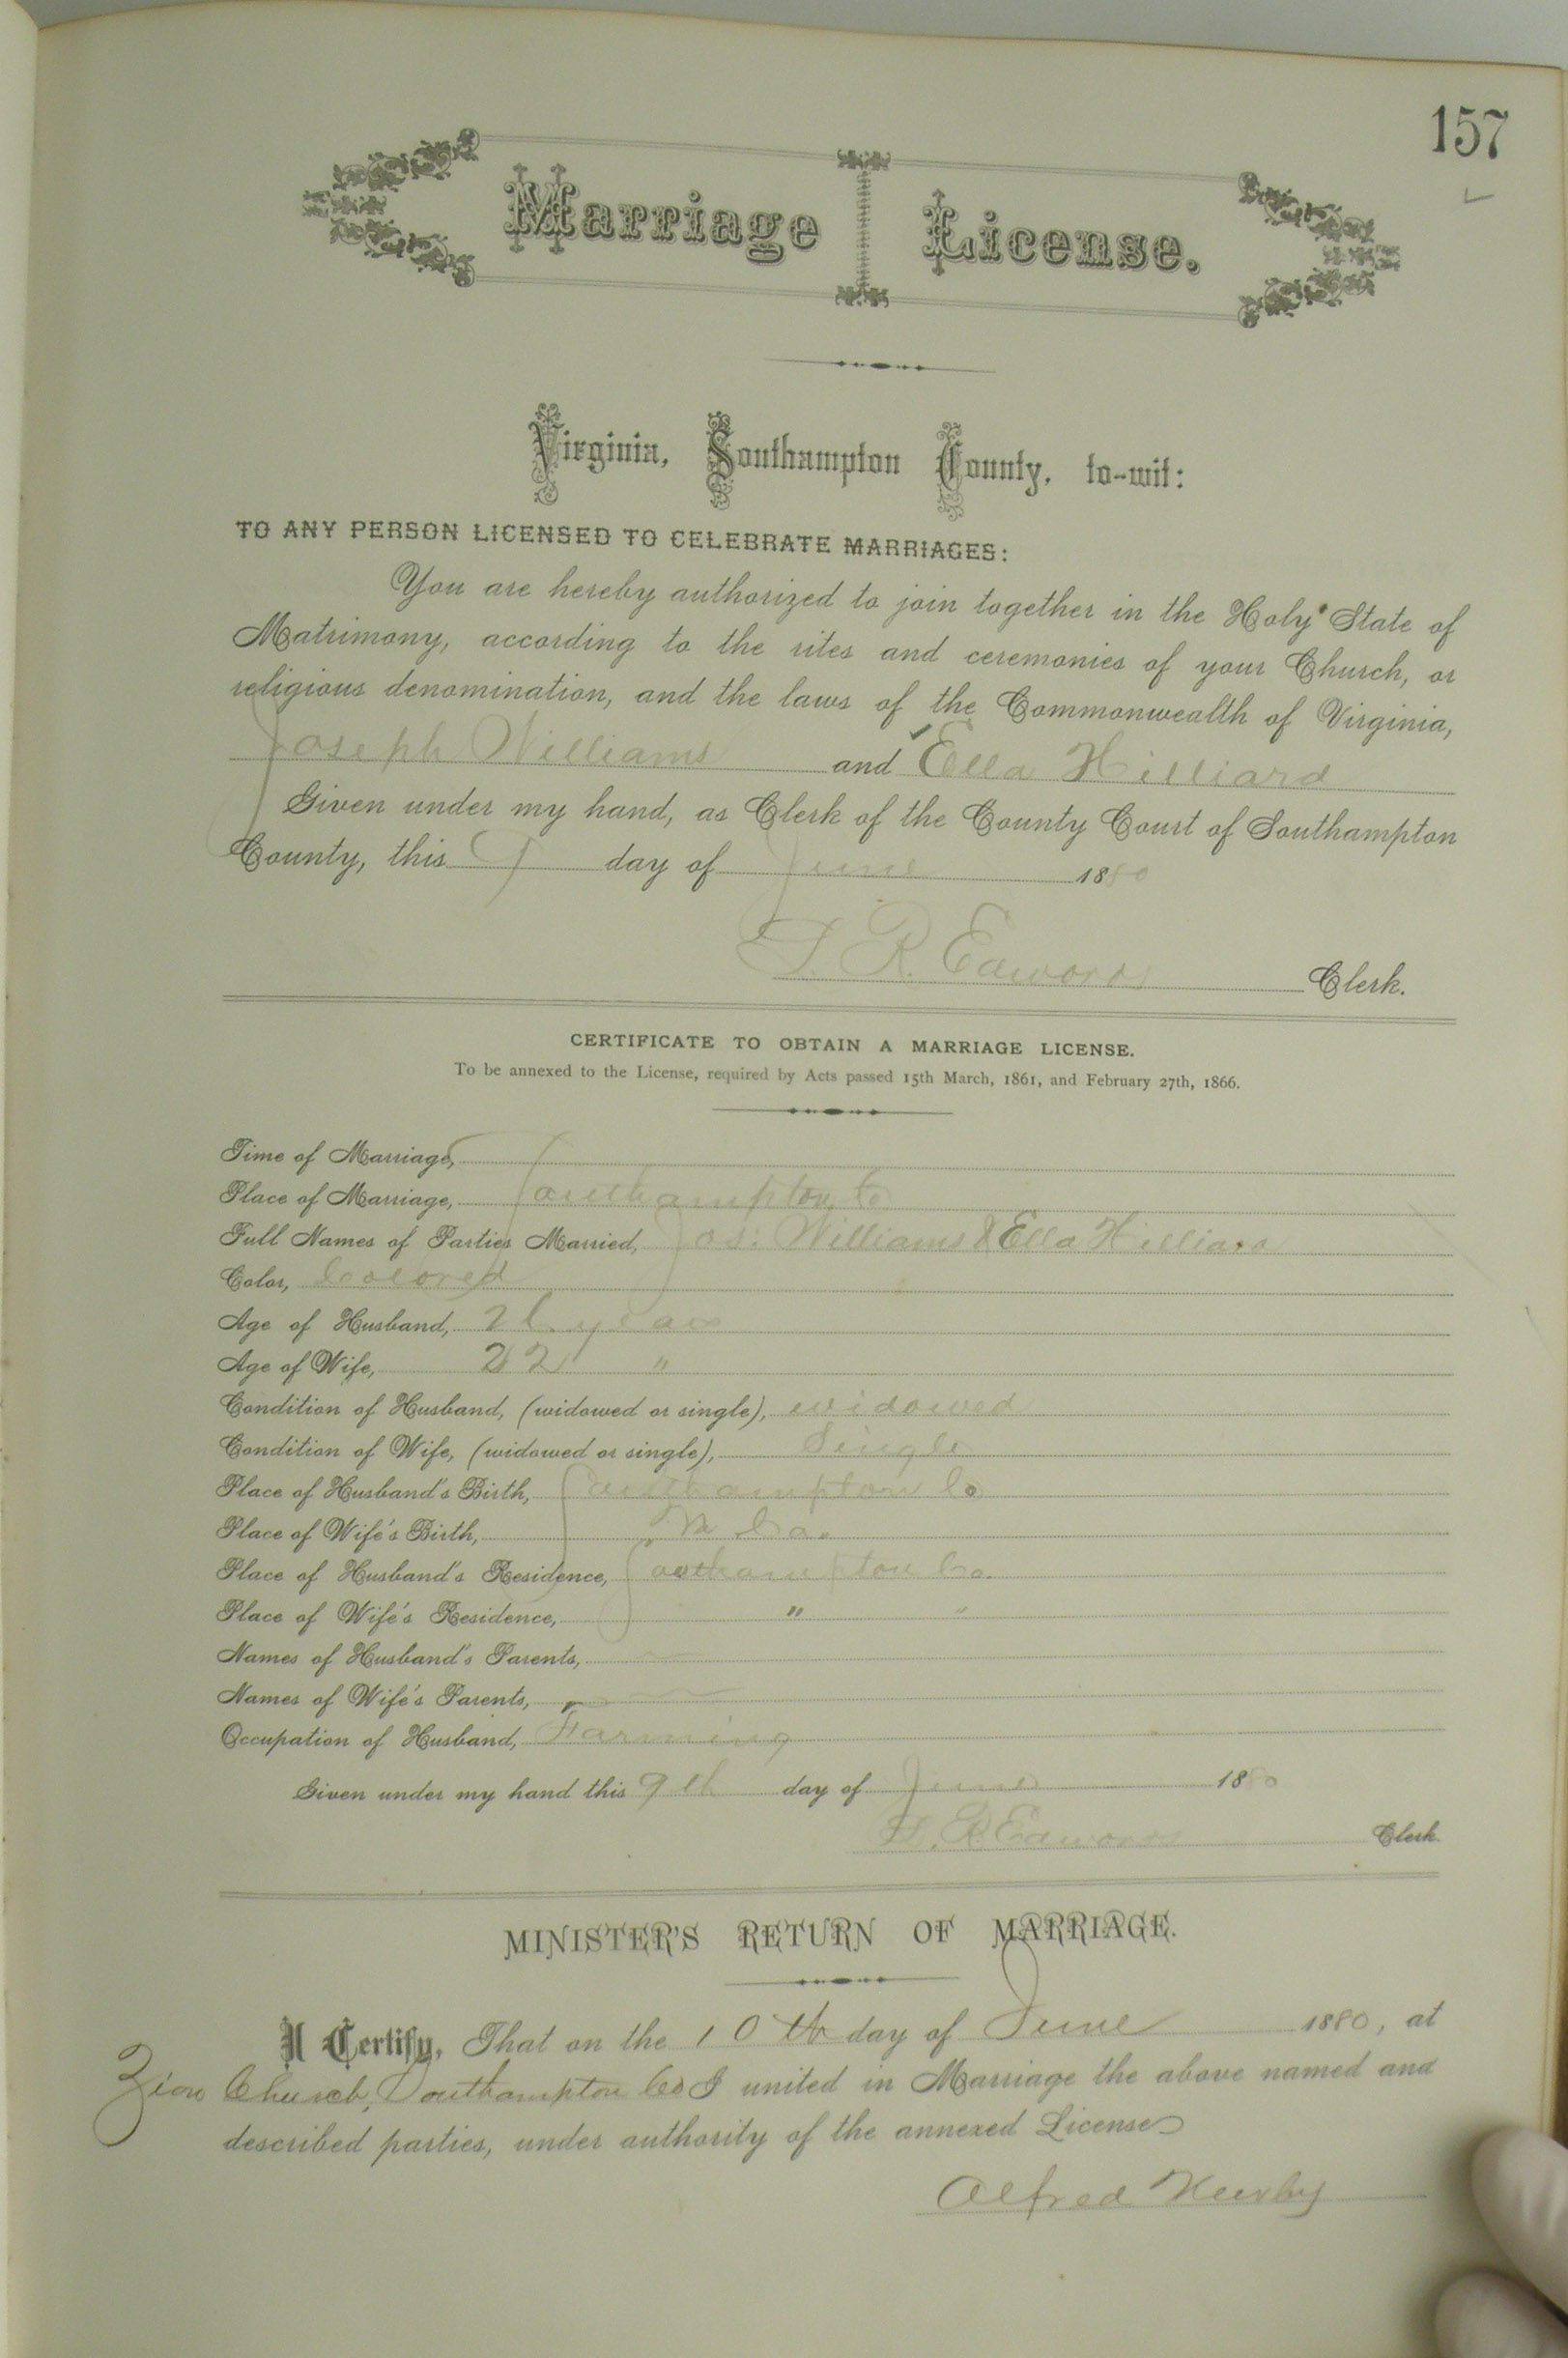 157
Marriage License.
Virginia, Southampton County, to-wit:
TO ANY PERSON LICENSED TO CELEBRATE MARRIAGES:
You are hereby authorized to join together in the Holy State of
Matrimony, according to the rites and ceremonies of your Church, or
religious denomination, and the laws of the Commonwealth of Virginia,
Joseph Williams and Ella Hilliard
Given under my hand, as Clerk of the County Court of Southampton
County, this 9 day of June 1880
L. R. Edwards Clerk.
CERTIFICATE TO OBTAIN A MARRIAGE LICENSE.
To be annexed to the License, required by Acts passed 15th March, 1861, and February 27th, 1866.
Time of Marriage,
Place of Marriage, Southampton Co
Full Names of Parties Married, Jos: Williams & Ella Hilliard
Color, Colored
Age of Husband, 26 years
Age of Wife, 22 "
Condition of Husband, (widowed or single), widowed
Condition of Wife, (widowed or single), Single
Place of Husband's Birth, Southampton Co
Place of Wife's Birth, Co.
Place of Husband's Residence, Southampton Co.
Place of Wife's Residence, " "
Names of Husband's Parents,
Names of Wife's Parents,
Occupation of Husband, Farming
Given under my hand this 9th day of June 1880
L. R. Edwards Clerk
MINISTER'S RETURN OF MARRIAGE.
I Certify, That on the 10th day of June 1880, at
Zion Church, Southampton Co I united in Marriage the above named and
described parties, under authority of the annexed License
Alfred